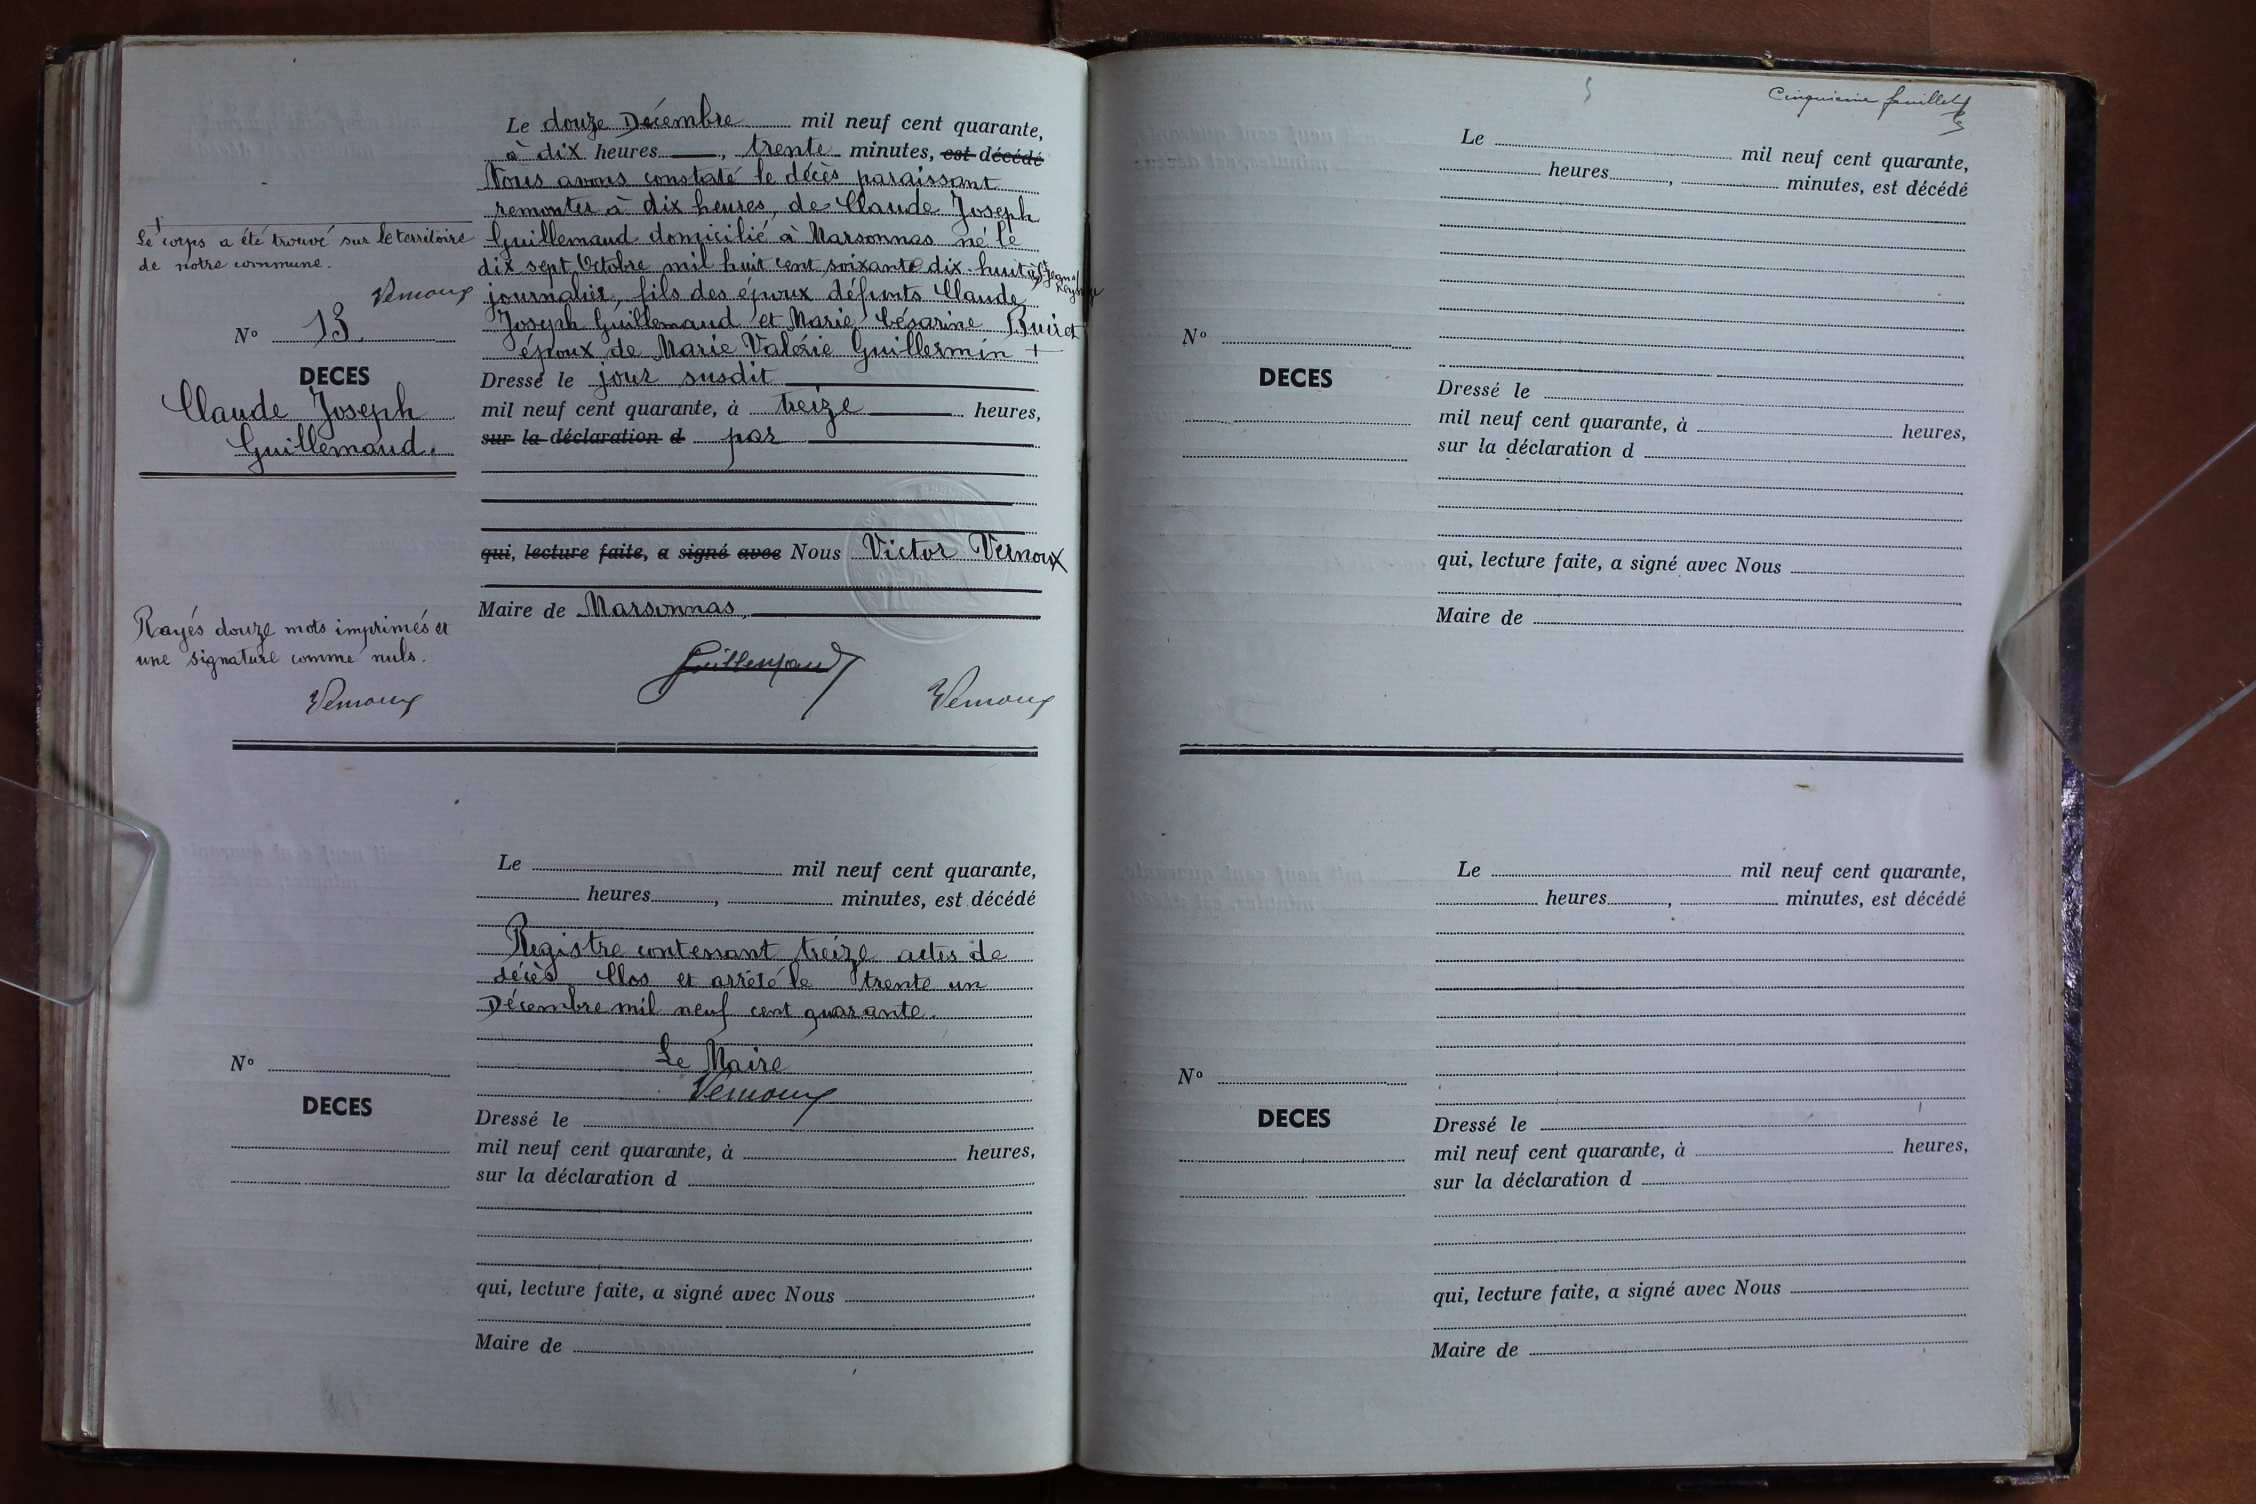 Le douze Décembre mil neuf cent quarante,
à dix heures, trente minutes, est décédé
Nous avons constaté le décès paraissant
remonter à dix heures, de Claude Joseph
Guillemaud domicilié à Marsonnas né le
dix sept Octobre mil huit cent soixante dix-huit à St Jean s/ Reyssouze
journalier, fils des époux défunts Claude
Joseph Guillemaud et Marie Césarine Buiret
époux de Marie Valérie Guillermin +
+
Le corps a été trouvé sur le territoire
de notre commune.
Vernoux
N° 13.
DECES
Claude Joseph
Guillemaud.
Dressé le jour susdit
mil neuf cent quarante, à treize heures,
sur la déclaration d par
qui, lecture faite, a signé avec Nous Victor Vernoux
Maire de Marsonnas
Rayés douze mots imprimés et
une signature comme nuls.
Vernoux
Guillemaud
Vernoux
Le mil neuf cent quarante,
heures, minutes, est décédé
Registre contenant treize actes de
décès Clos et arrêté le trente un
Décembre mil neuf cent quarante.
Le Maire
Vernoux
N°
DECES
Dressé le
mil neuf cent quarante, à heures,
sur la déclaration d
qui, lecture faite, a signé avec Nous
Maire de
5
Cinquième feuillet
Le mil neuf cent quarante,
heures, minutes, est décédé
N°
DECES
Dressé le
mil neuf cent quarante, à heures,
sur la déclaration d
qui, lecture faite, a signé avec Nous
Maire de
Le mil neuf cent quarante,
heures, minutes, est décédé
N°
DECES
Dressé le
mil neuf cent quarante, à heures,
sur la déclaration d
qui, lecture faite, a signé avec Nous
Maire de